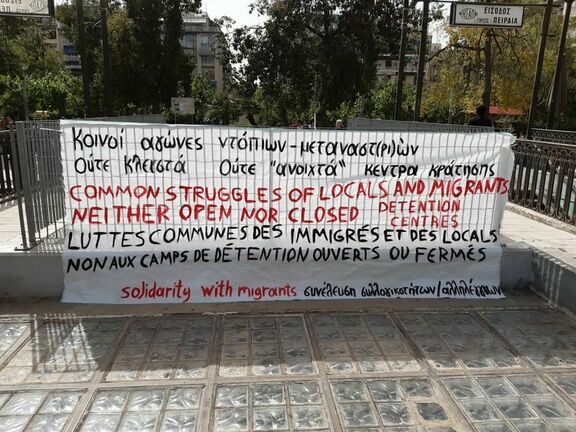 ΕΙΣΟΔΟΣ
ΠΡΟΣ ΠΕΙΡΑΙΑ
Κοινοί αγώνες ντόπιων-μεταναστ(ρι)ών
Ούτε Κλειστά Ούτε "ανοιχτά" κέντρα κράτησης
COMMON STRUGGLES OF LOCALS AND MIGRANTS
NEITHER OPEN NOR CLOSED DETENTION CENTRES
LUTTES COMMUNES DES IMMIGRÉS ET DES LOCALS
NON AUX CAMPS DE DÉTENTION OUVERTS OU FERMÉS
solidarity with migrants συνέλευση συλλογικοτήτων/αλληλέγγυων